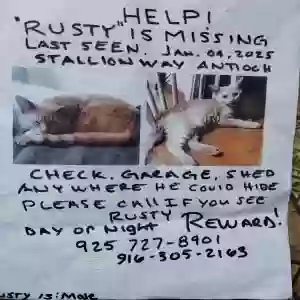 HELP!
"RUSTY" IS MISSING
LAST SEEN. JAN. 04, 2025
STALLION WAY ANTIOCH
CHECK. GARAGE, SHED
ANY WHERE HE COULD HIDE
PLEASE CALL IF YOU SEE
RUSTY REWARD!
DAY OR NIGHT
925 727-8901
916-305-2163
USTY IS: MALE